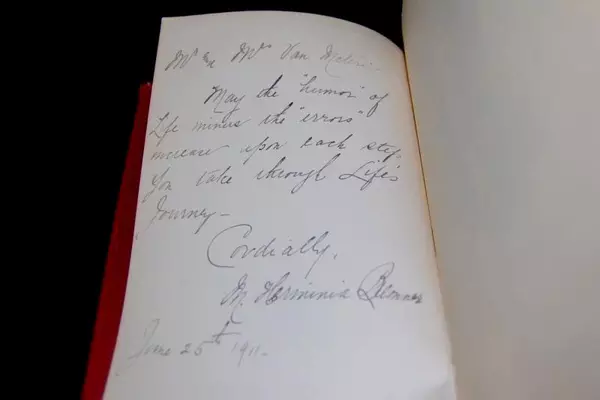 Mr & Mrs Van
May the "humor" of
Life minus the "errors"
increase upon each step
you take through Life's
Journey—
Cordially,
M. Herminia
June 25th 1911—